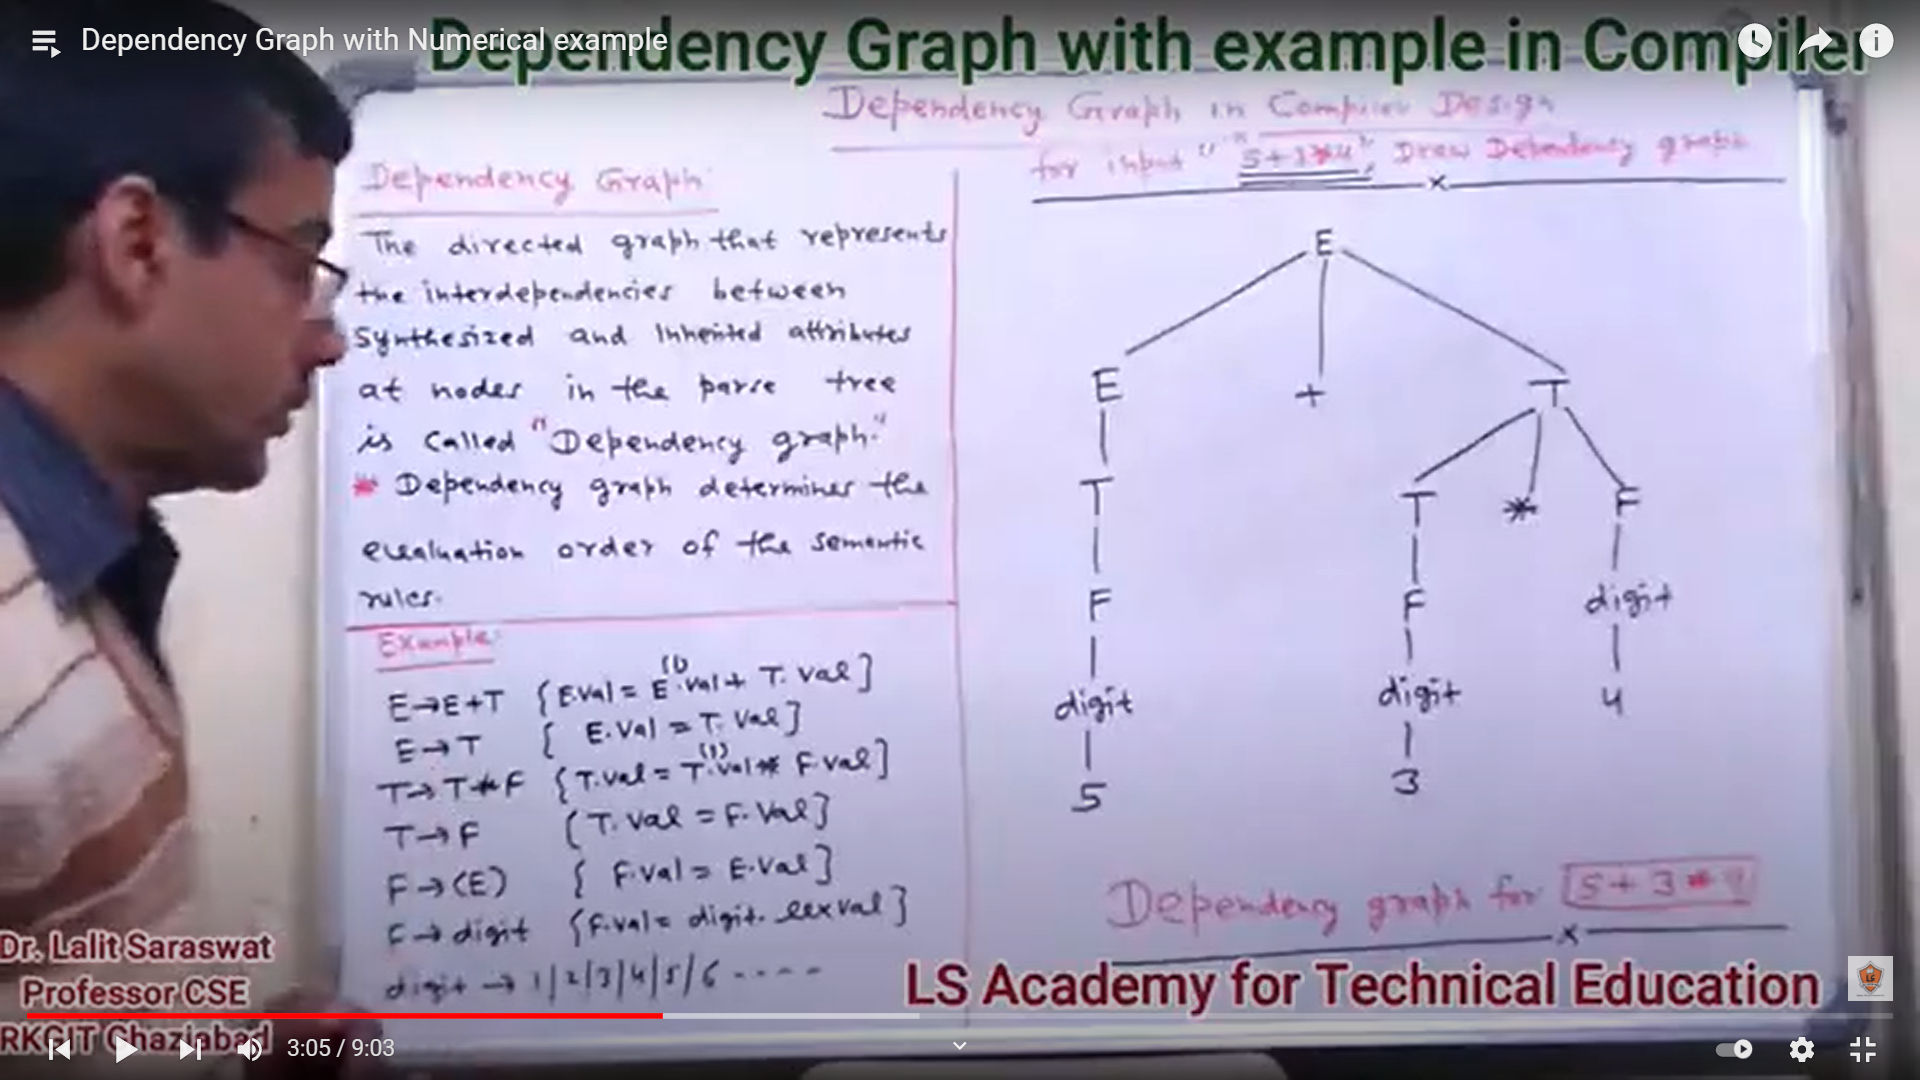 Dependency Graph with Numerical example
Dependency Graph with example in Compiler
Dependency Graph in Compiler Design
for input "5+3*4", Draw Dependency graph
x
Dependency Graph
The directed graph that represents
the interdependencies between
Synthesized and Inherited attributes
at nodes in the parse tree
is Called "Dependency graph."
* Dependency graph determines the
evaluation order of the semantic
rules.
Example:
E→E+T {E.val = E⁽¹⁾.val + T.val}
E→T { E.val = T.val}
T→T*F {T.val = T⁽¹⁾.val * F.val}
T→F {T.val = F.val}
F→(E) { F.val = E.val}
F→digit {F.val = digit.lexval}
digit → 1/2/3/4/5/6 ----
E
E + T
T T * F
F F digit
digit digit 4
5 3
Dependency graph for 5+3*4
x
Dr. Lalit Saraswat
Professor CSE
RKGIT Ghaziabad
LS Academy for Technical Education
3:05 / 9:03